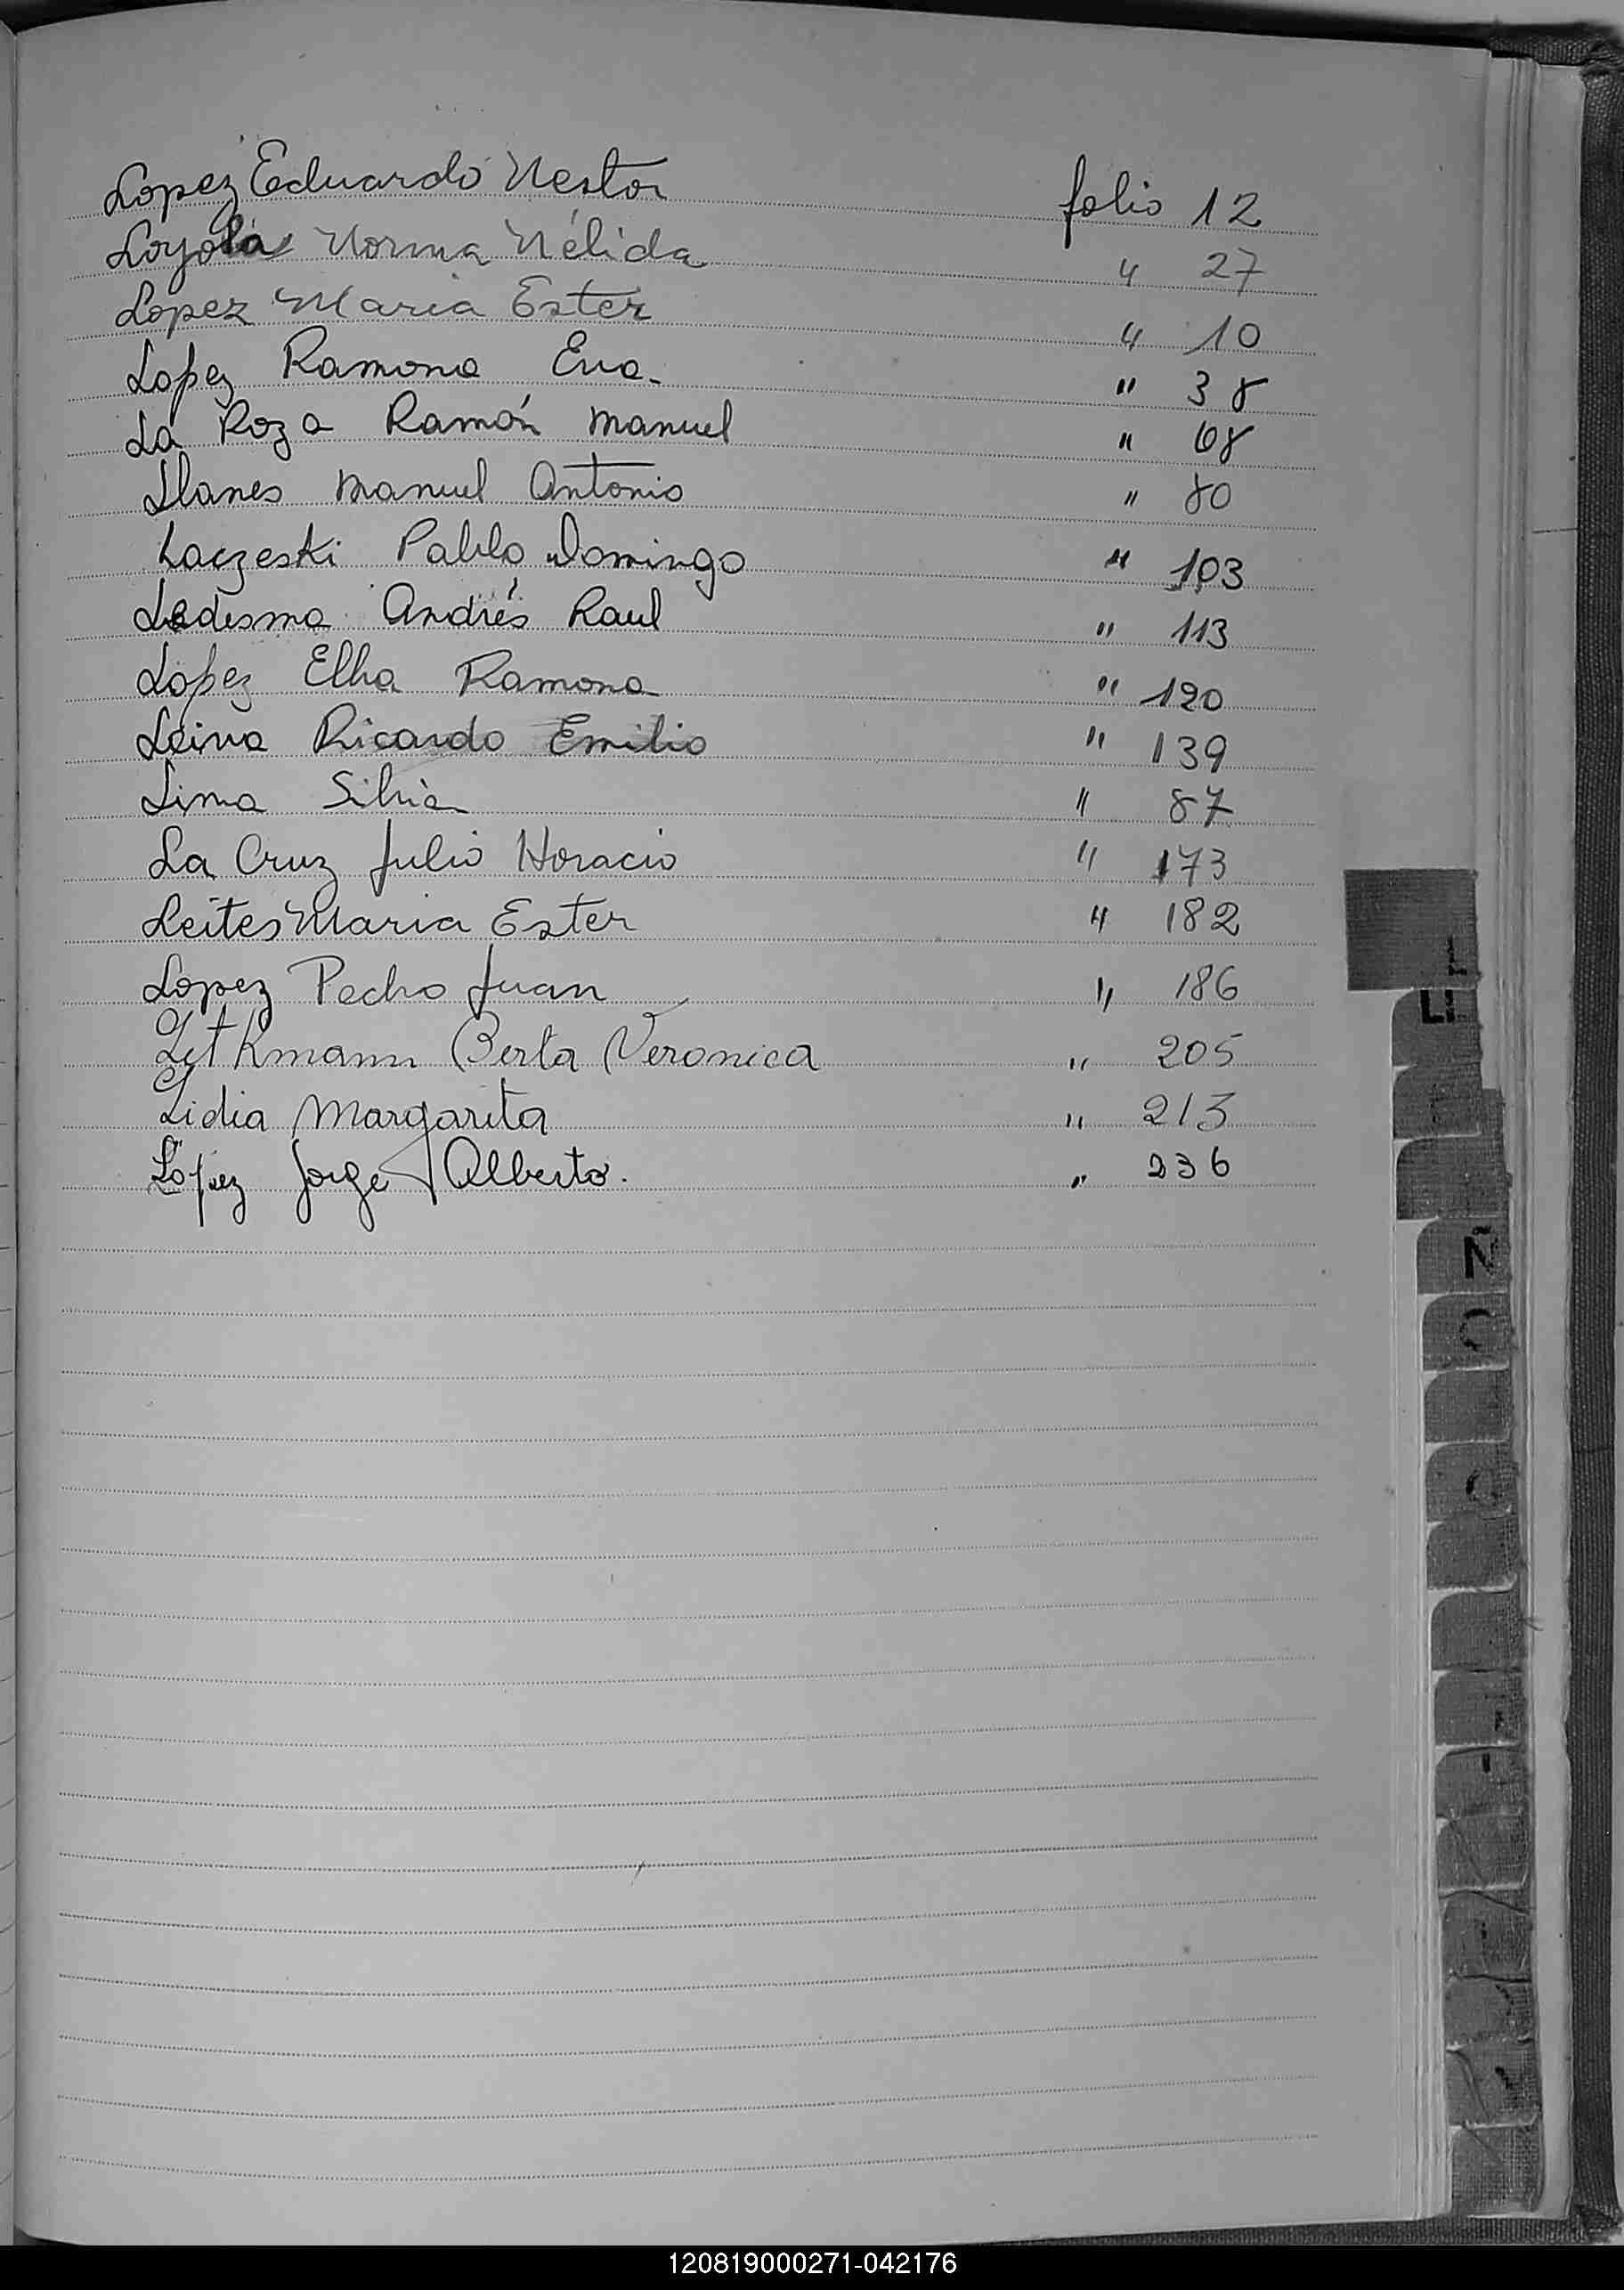 Lopez Eduardo Nestor folio 12
Loyola Norma Nélida " 27
Lopez Maria Ester " 10
Lopez Ramona Eva. " 38
La Roza Ramón Manuel " 68
Llanes Manuel Antonio " 80
Laczeski Pablo Domingo " 103
Ledesma Andrés Raul " 113
López Elba Ramona " 120
Leiva Ricardo Emilio " 139
Lima Silvia " 87
La Cruz Julio Horacio " 173
Leites Maria Ester " 182
Lopez Pedro Juan " 186
Letkmann Berta Veronica " 205
Lidia Margarita " 213
López Jorge Alberto. " 236
L
LL
Ñ
O
120819000271-042176